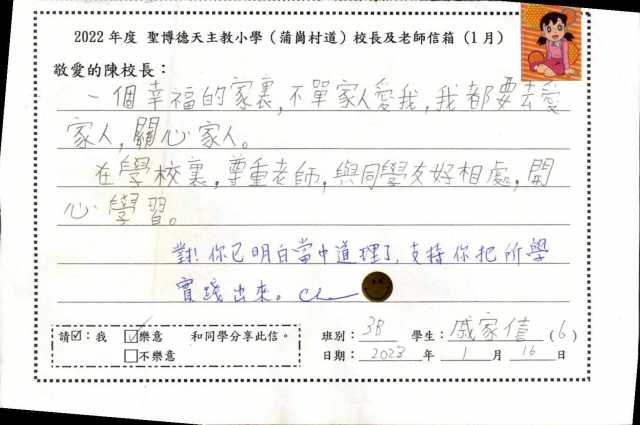 2022 年度 聖博德天主教小學（蒲崗村道）校長及老師信箱（1月）
敬愛的陳校長：
一個幸福的家裏，不單家人愛我，我都要去愛
家人，關心家人。
在學校裏，尊重老師，與同學友好相處，開
心學習。
對！你已明白當中道理了，支持你把所學
實踐出來。
請☑：我 ☑樂意 和同學分享此信。
□不樂意
班別： 3B 學生： 戚家僖 (6)
日期： 2023 年 1 月 16 日